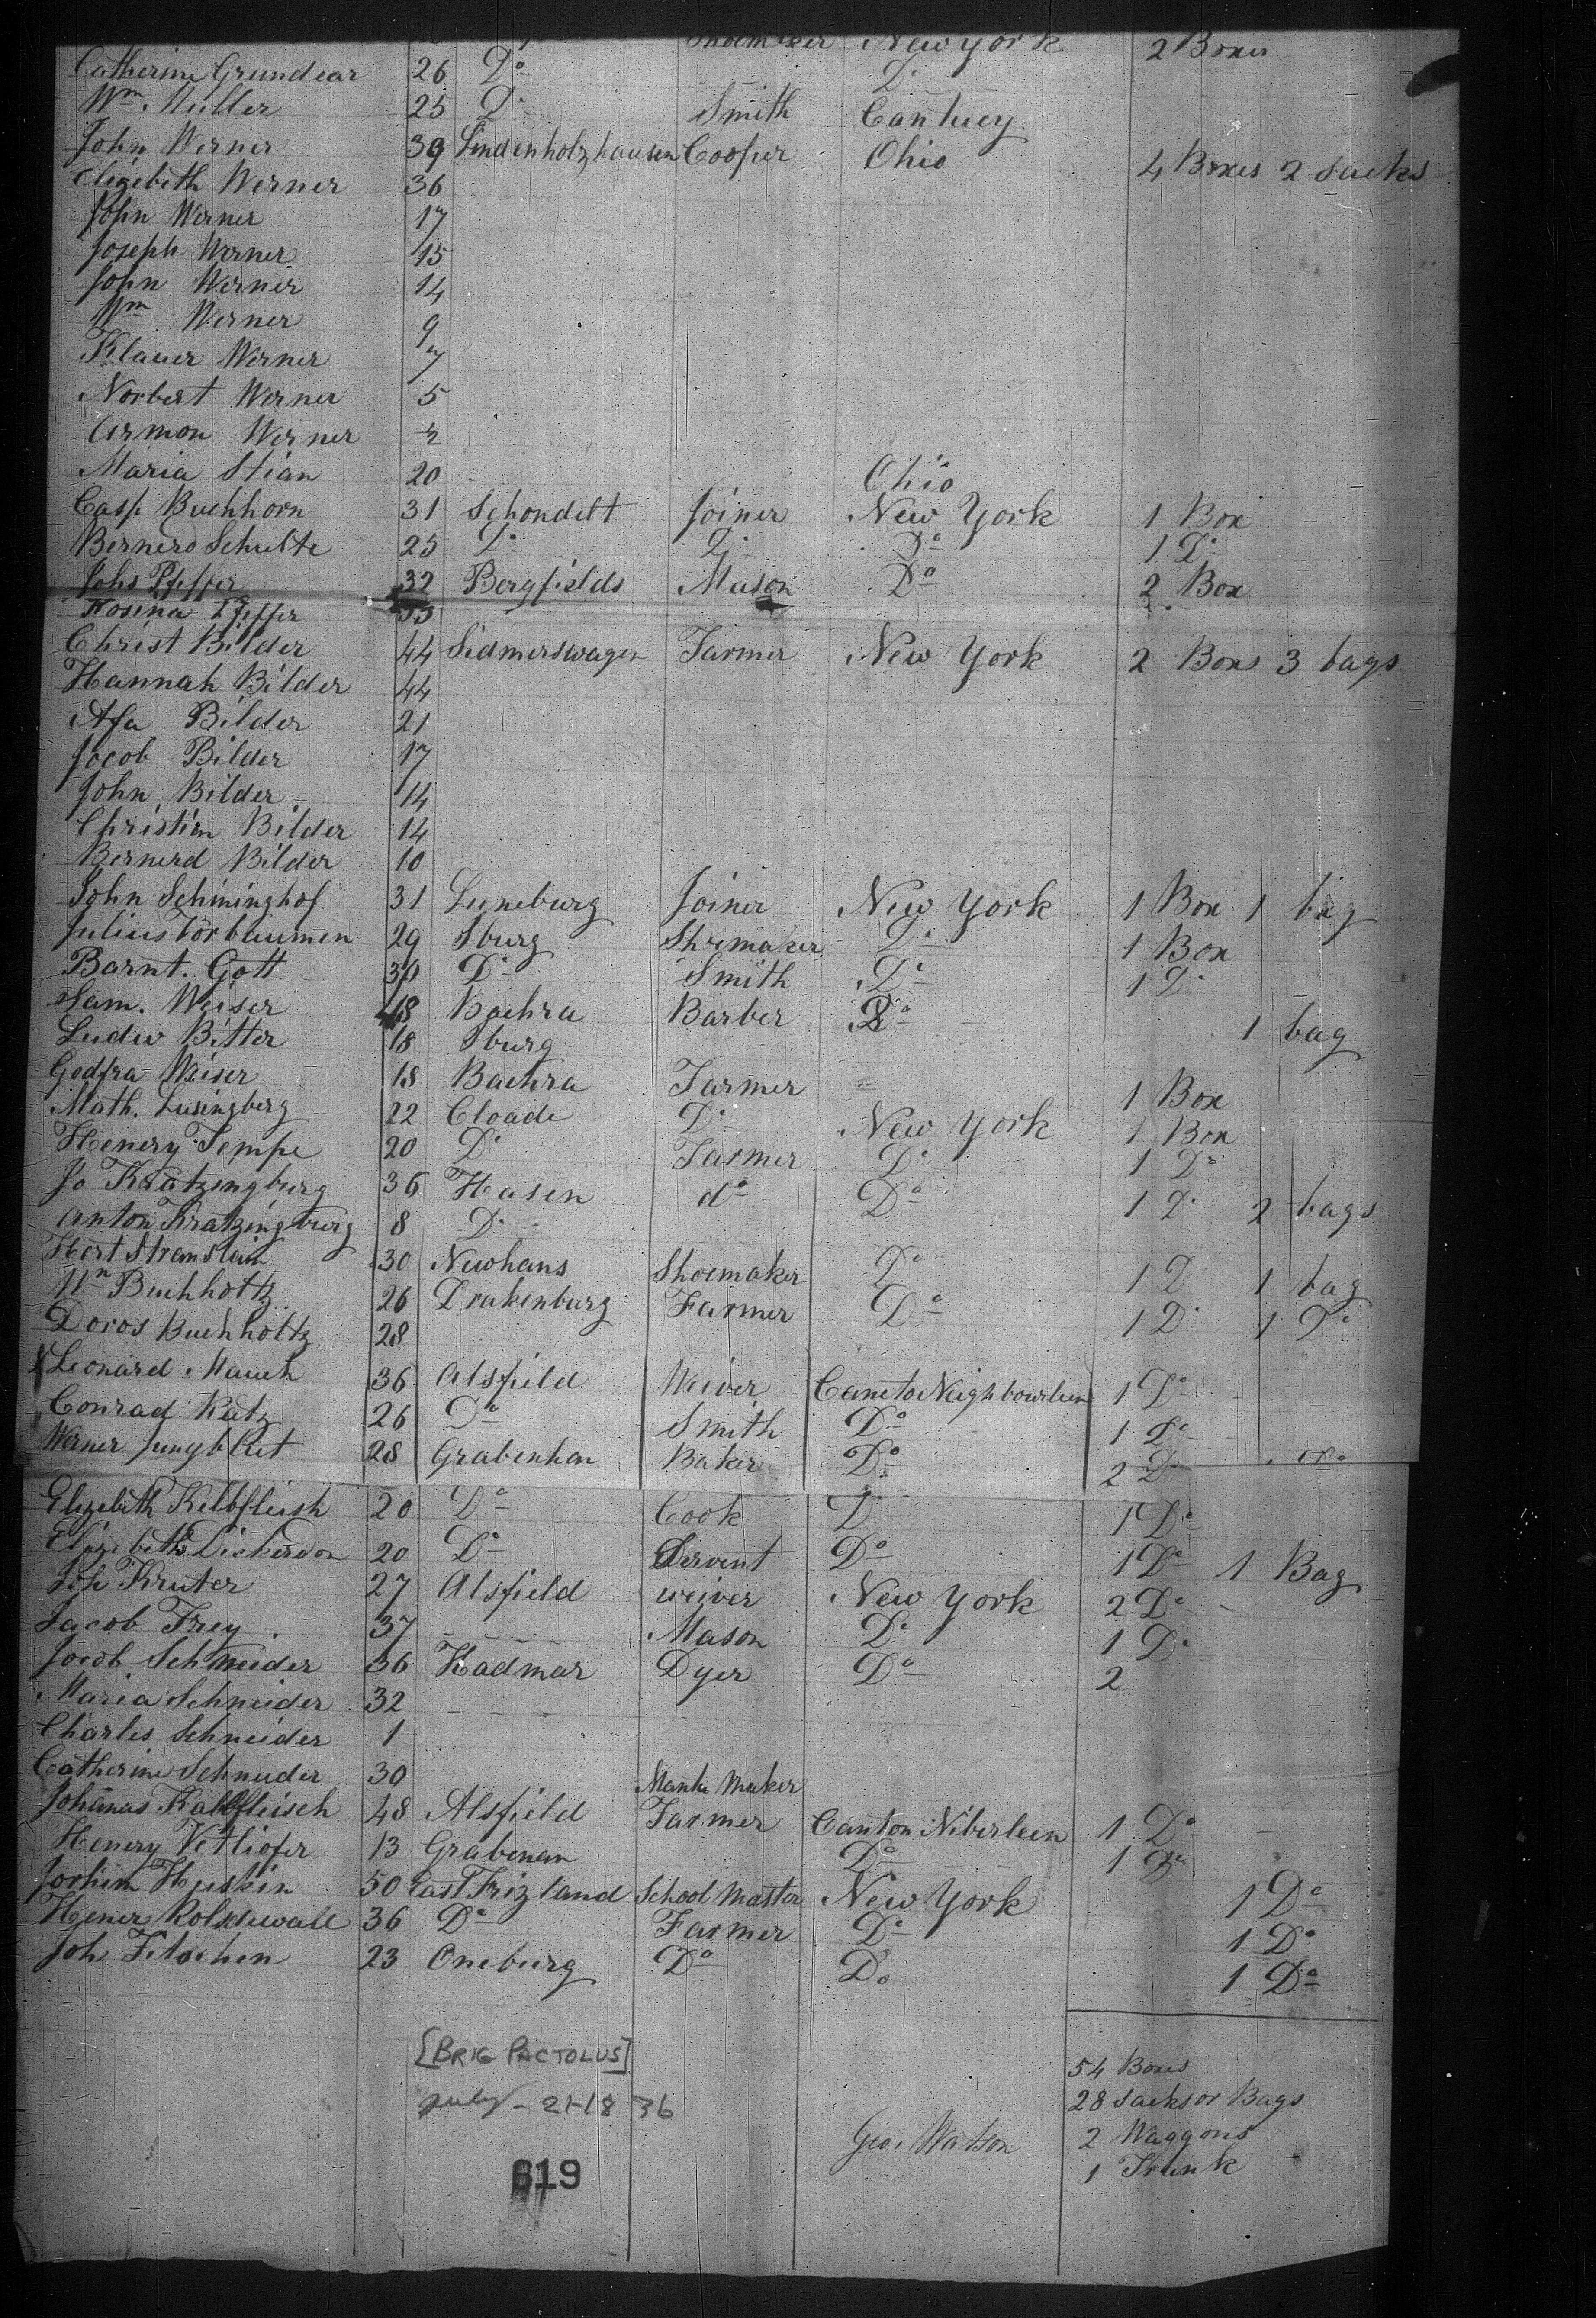 Shoemaker New York 2 Boxes
Catherine Grundear 26 Do Do
Wm Muller 25 Do Smith Cantucy
John Werner 39 Lindenholzhausen Cooper Ohio 4 Boxes 2 Sacks
Elizebith Werner 36
John Werner 17
Joseph Werner 15
John Werner 14
Wm Werner 9
Klauer Werner 7
Norbert Werner 5
Armon Werner ½
Maria Stian 20 Ohio
Casp Buchhorn 31 Schondelt Joiner New York 1 Box
Bernerd Schulte 25 Do Do Do 1 Do
Johs Pfeffer 32 Bergfields Mason Do 2 Box
Rosina Pfeffer 33
Christ Bilder 44 Sidmerswagen Farmer New York 2 Boxs 3 bags
Hannah Bilder 44
Afa Bilder 21
Jocob Bilder 17
John Bilder 14
Christian Bilder 14
Bernerd Bilder 10
John Schininghof 31 Luneburg Joiner New York 1 Box 1 bag
Julius Vorbaumen 29 Sburg Shoemaker Do 1 Box
Barnt. Gott 30 Do Smith Do 1 Do
Sam. Weiser 48 Bachra Barber Do 1 bag
Ludw Bitter 18 Sburg
Godfra Weiser 18 Bachra Farmer 1 Box
Math. Lusingberg 22 Cloade Do New York 1 Box
Henery Tempe 20 Do Farmer Do 1 Do
Jo Kratzingburg 36 Hasen do Do 1 Do 2 bags
Anton Kratzingburg 8 Do
Hert 30 Newhans Shoemaker Do 1 Do 1 bag
Wm Buchholtz 26 Drakenburg Farmer Do 1 Do 1 Do
Doros Buchholtz 28
Leonard Mauch 36 Alsfield Weiver Caneto Neighbourleen 1 Do
Conrad Katz 26 Do Smith Do 1 Do
Werner Jungblut 28 Grabenhan Baker Do 2 Do Do
Elizebith Kelbfleish 20 Do Cook Do 1 Do
Elizebith Dickerson 20 Do Servent Do 1 Do 1 Bag
Joh Kruter 27 Alsfield weiver New York 2 Do
Jacob Frey 37 Mason Do 1 Do
Jocob Schneider 36 Hadmar Dyer Do 2
Maria Schneider 32
Charles Schneider 1
Catherine Schneider 30 Mantu Maker
Johanas Kalbfleisch 48 Alsfield Farmer Canton Niberleen 1 Do
Henery Vetliofer 13 Grabenan Do 1 Do
Jorhim Huskin 50 East Frizland School Master New York 1 Do
Hener Rolsdewall 36 Do Farmer Do 1 Do
Joh Fitschen 23 Oneburg Do Do 1 Do
54 Boxes
[BRIG PACTOLUS]
28 Sacks or Bags
July - 21-1836
2 Waggons
Geo. Watson
1 Trunk
619